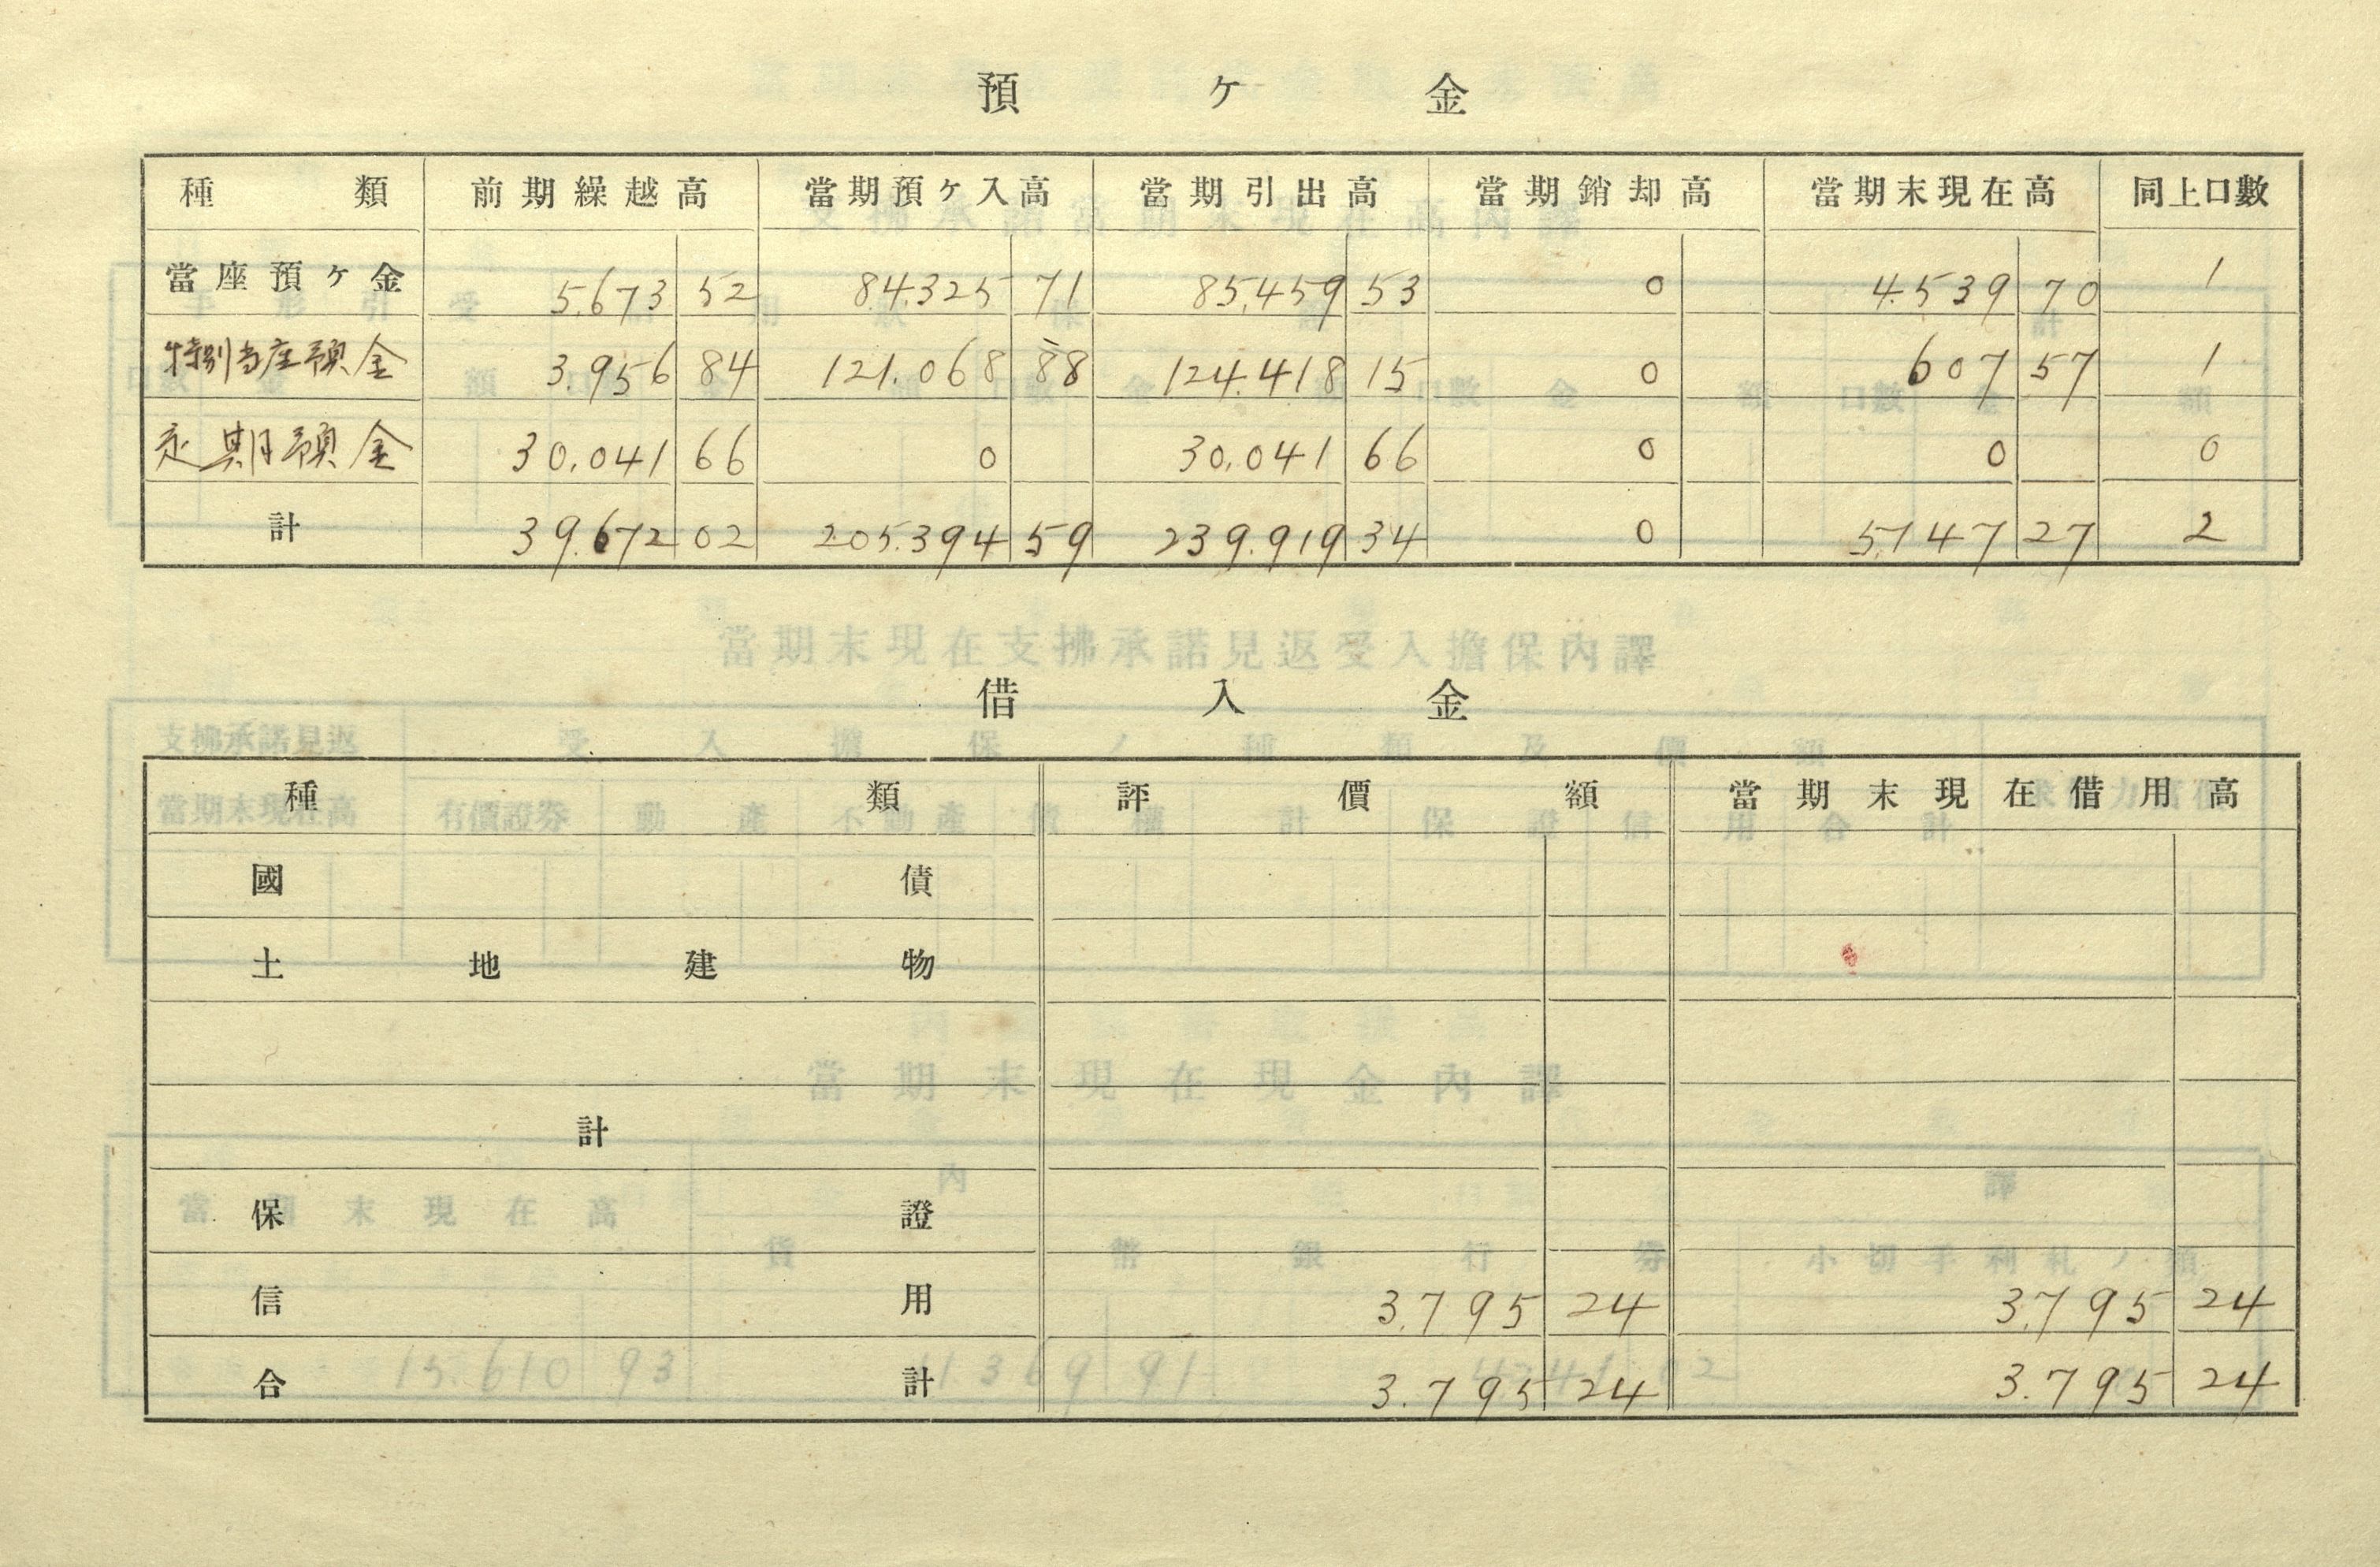 預ケ金
種類 前期繰越高 當期預ケ入高 當期引出高 當期銷却高 當期末現在高 同上口數
當座預ケ金 5.673 52 84.325 71 85.459 53 0 4.539 70 1
特別当座預金 3.956 84 121.068 88 124.418 15 0 607 57 1
定期預金 30.041 66 0 30.041 66 0 0 0
計 39.672 02 205.394 59 239.919 34 0 5.147 27 2
借入金
種類 評價額 當期末現在借用高
國債
土地建物
計
保證
信用 3.795 24 3.795 24
合計 3.795 24 3.795 24